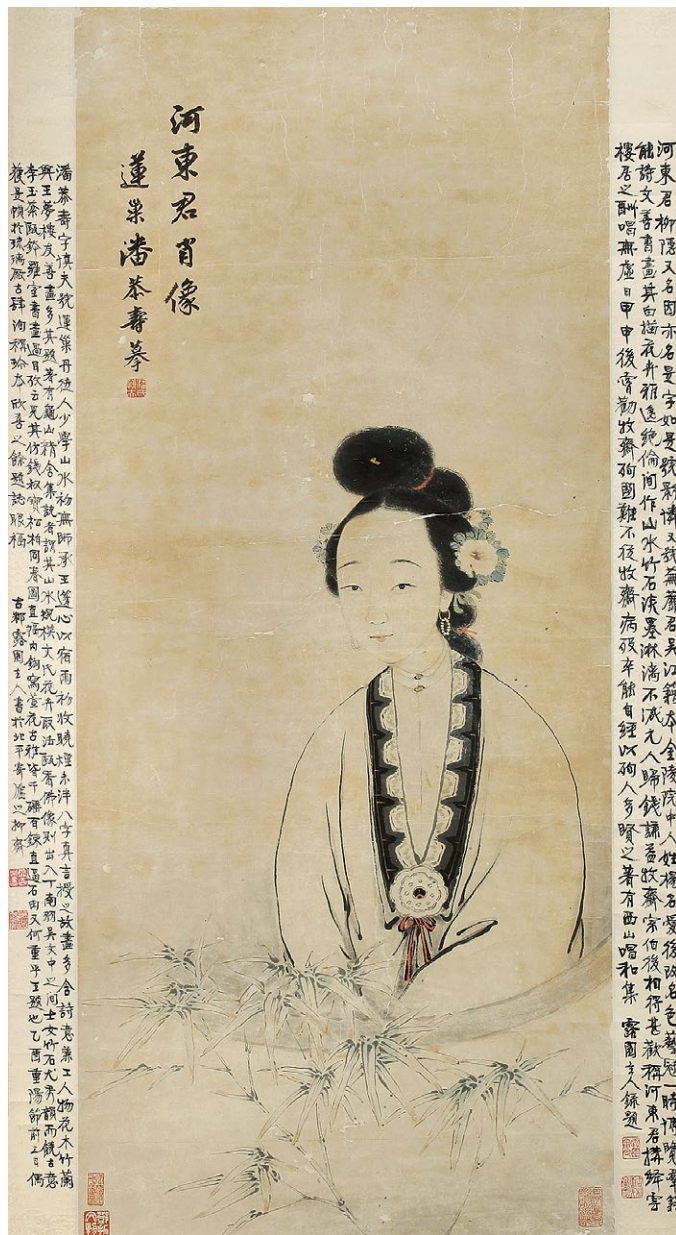 河東君柳隱又名因亦名是字如是號影憐又號蘼蕪君吳江籍本金陵院中人姓楊名愛後改名色藝冠一時博覽羣籍
能詩文善書畫其白描花卉雅逸絕倫間作山水竹石淡墨淋漓不減元人歸錢謙益牧齋宗伯後相得甚歡稱河東君搆絳雲
樓居之酬唱無虛日甲申後嘗勸牧齋殉國難不從牧齋病歿卒能自經以殉人多賢之著有西山唱和集 露園主人錄題
河東君肖像
蓮巢潘恭壽摹
潘恭壽字慎夫號蓮巢丹徒人少學山水初無師承王蓬心以宿雨初收曉煙未泮八字真言授之故畫多含詩意兼工人物花木竹蘭
與王夢樓友善畫多其題著有龜山精舍集說者謂其山水規模文氏花卉取法甌香佛像則出入丁南羽吳文中之間士女竹石尤秀韻而饒古意
李玉棻甌鉢羅室書畫過目攷云見其仿錢叔寶松柏同春圖直幅內鉤寫萱花古雅皆千百鍊直逼石田又何重乎王題也乙酉重陽節前二日偶
獲是幀於琉璃厰古肆洵稱珍本欣喜之餘題誌眼福 露園主人書於北平寄廬之抑齋